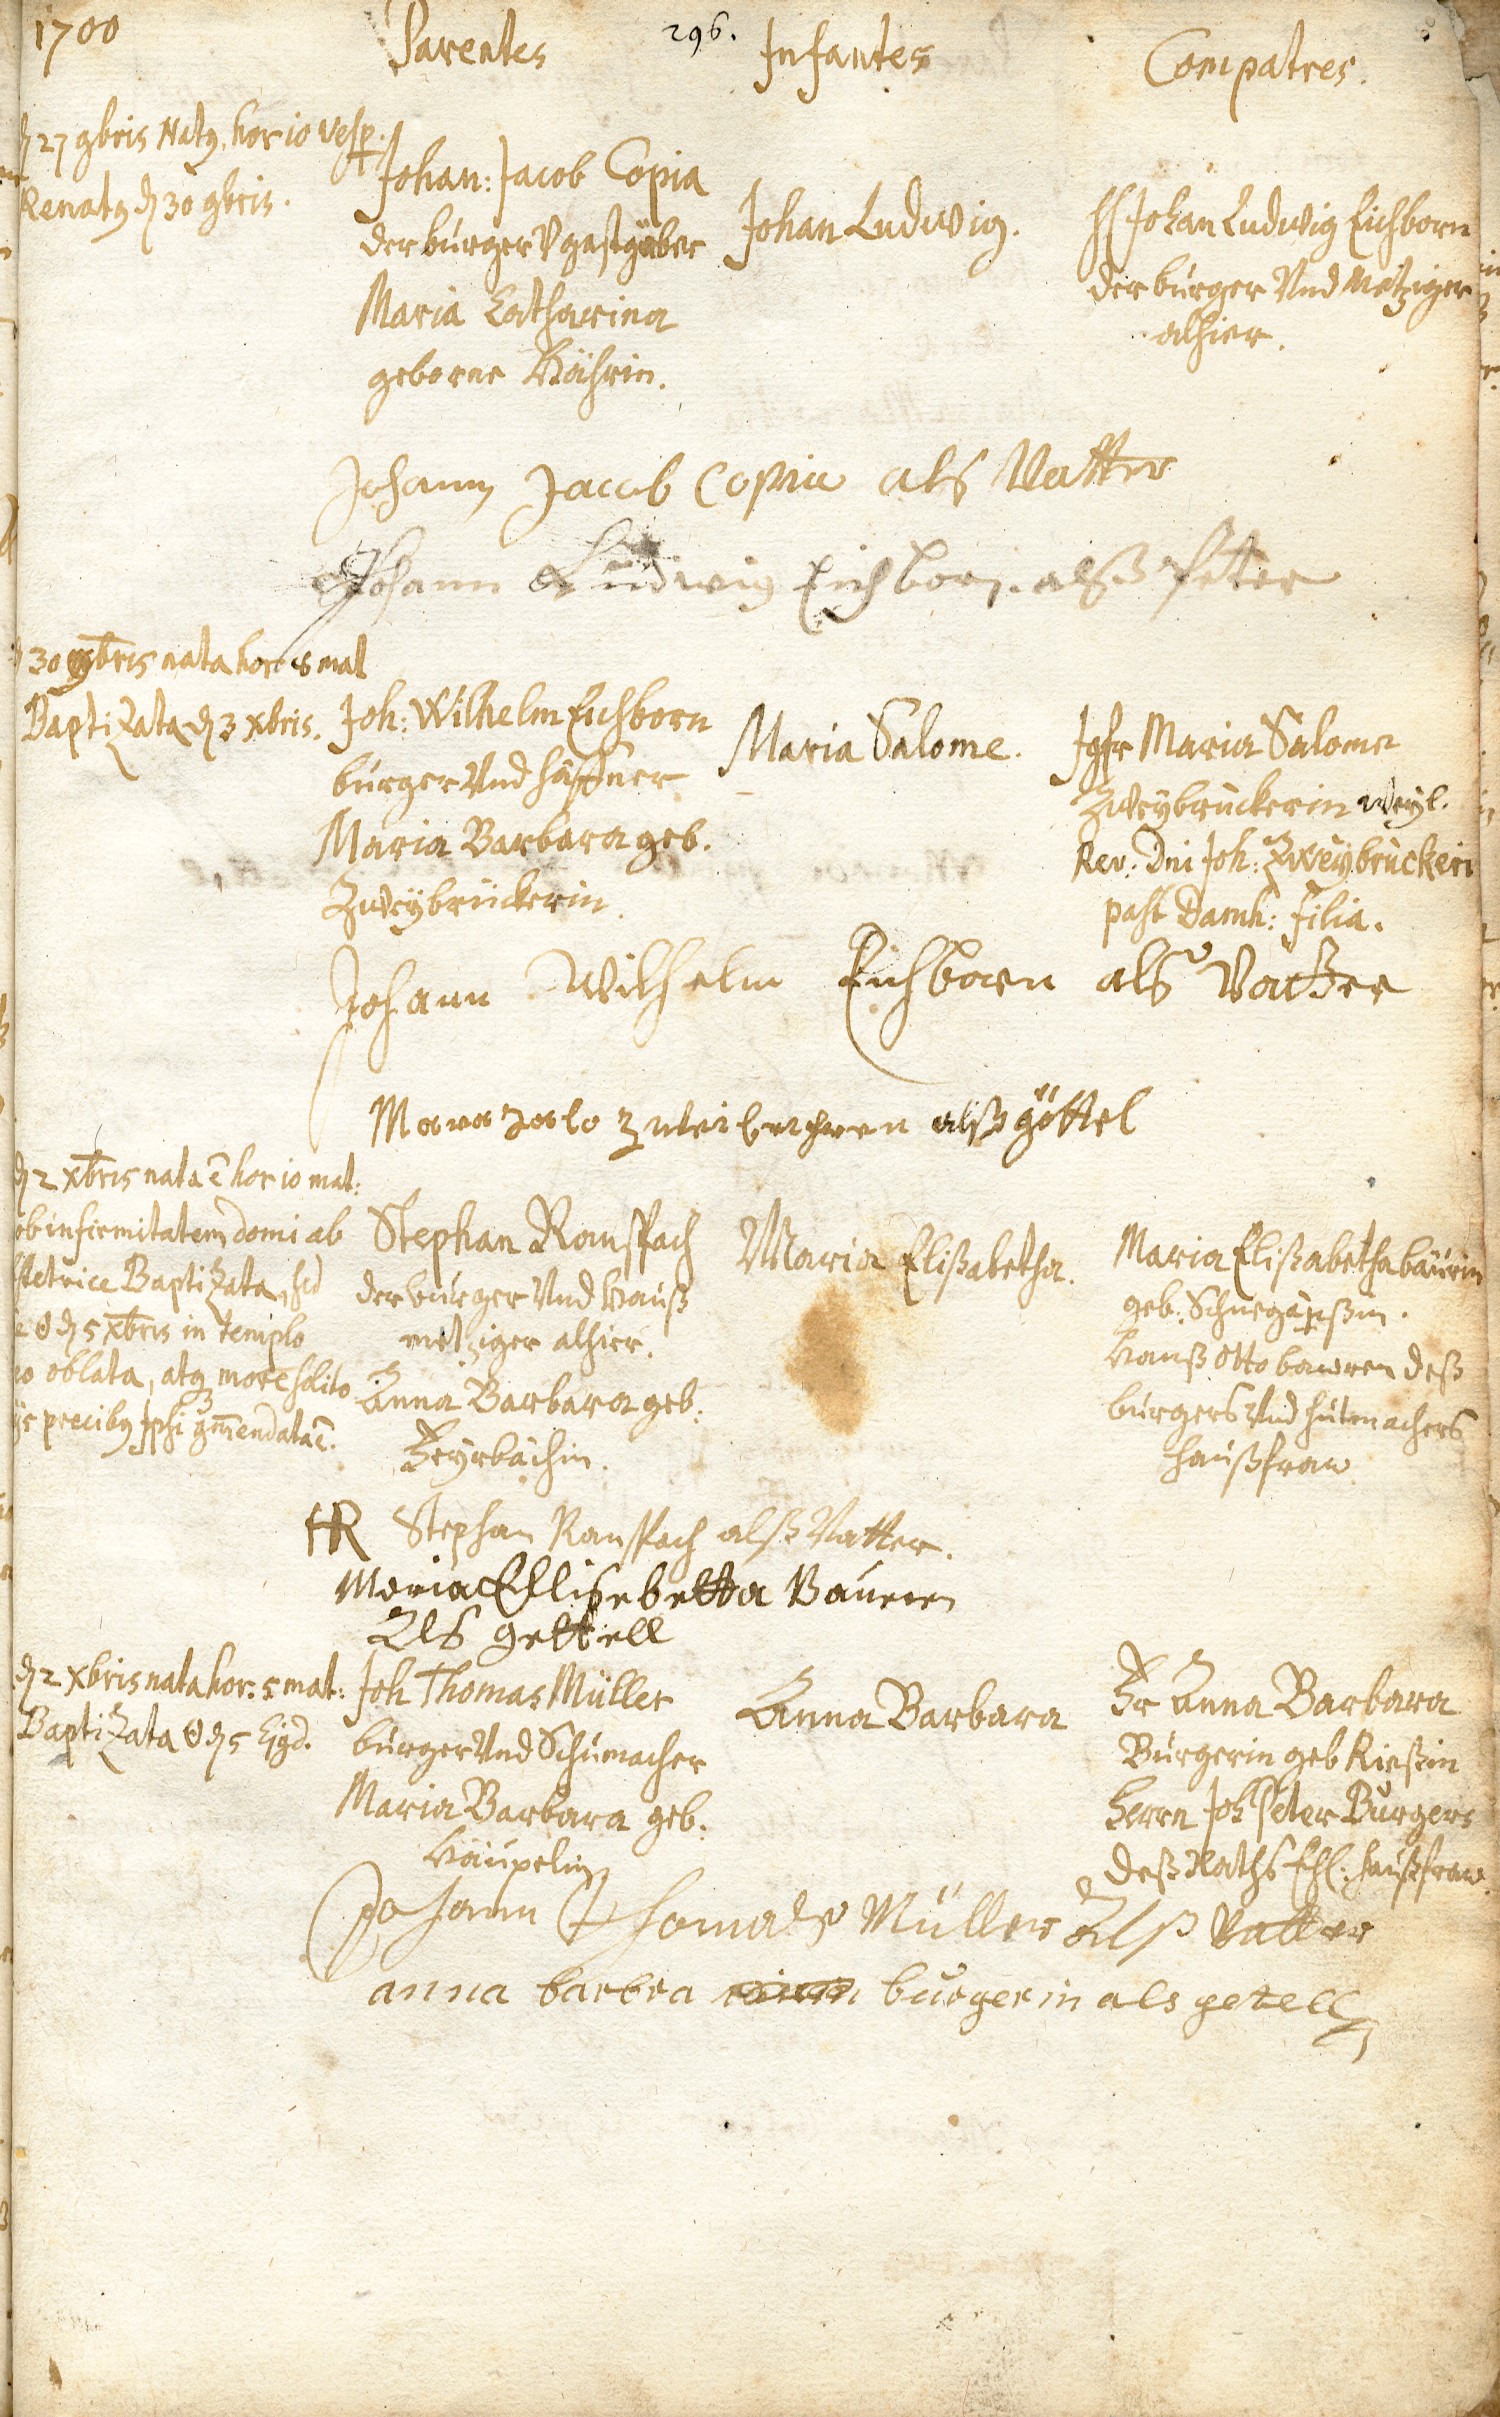 1700
Parentes
296.
Infantes
Compatres.
d 27 9bris Natq, hor 10 vesp.
Renatq d 30 9bris.
Johan: Jacob Copia
der burger V gastgäber
Maria Catharina
geborne
Johan Ludwig.
H Johan Ludwig Eichborn
der burger Vnd Metziger
alhier.
Johann Jacob Copia als Vatter
Johann Ludwig Eichborn. alß Petter
30 9bris nata hor 8 mat
Baptizata d 3 Xbris.
Joh: Wilhelm Eichborn
burger Vnd haffner
Maria Barbara geb.
Zweÿbrückerin.
Maria Salome.
Jgfr Maria Salome
Zweÿbrückerin weyl.
Rev: Dni Joh: Zweÿbrückeri
past Damh: filia.
Johann Wilhelm Eichborn als Vatter
alß göttel
d 2 Xbris nata ē hor 10 mat:
ob infirmitatem domi ab
stetrice Baptizata, sed
d 5 Xbris in templo
oblata, atq more solito
precibq Jphi
Stephan Ranspach
der burger Vnd Hauß
metziger alhier.
Anna Barbara geb:
Beyrbachin.
Maria Elißabetha.
Maria Elißabetha bäurin
geb:
Hanß Otto bawren deß
burgers Vnd hutmachers
haußfraw
HR Stephan Ranspach alß Vatter.
Maria Ellisebetta Bäueren
Als gettell
d 2 Xbris nata hor: 5 mat:
Baptizata d 5 Ejgd.
Joh Thomas Müller
burger Vnd Schumacher
Maria Barbara geb:
Häupelin
Anna Barbara
Fr Anna Barbara
Burgerin geb Rießin
Herrn Joh Peter Burgers
deß Raths Ehl: haußfraw.
Johann Thomas Müller Alß Vatter
anna barbra burgerin als getell